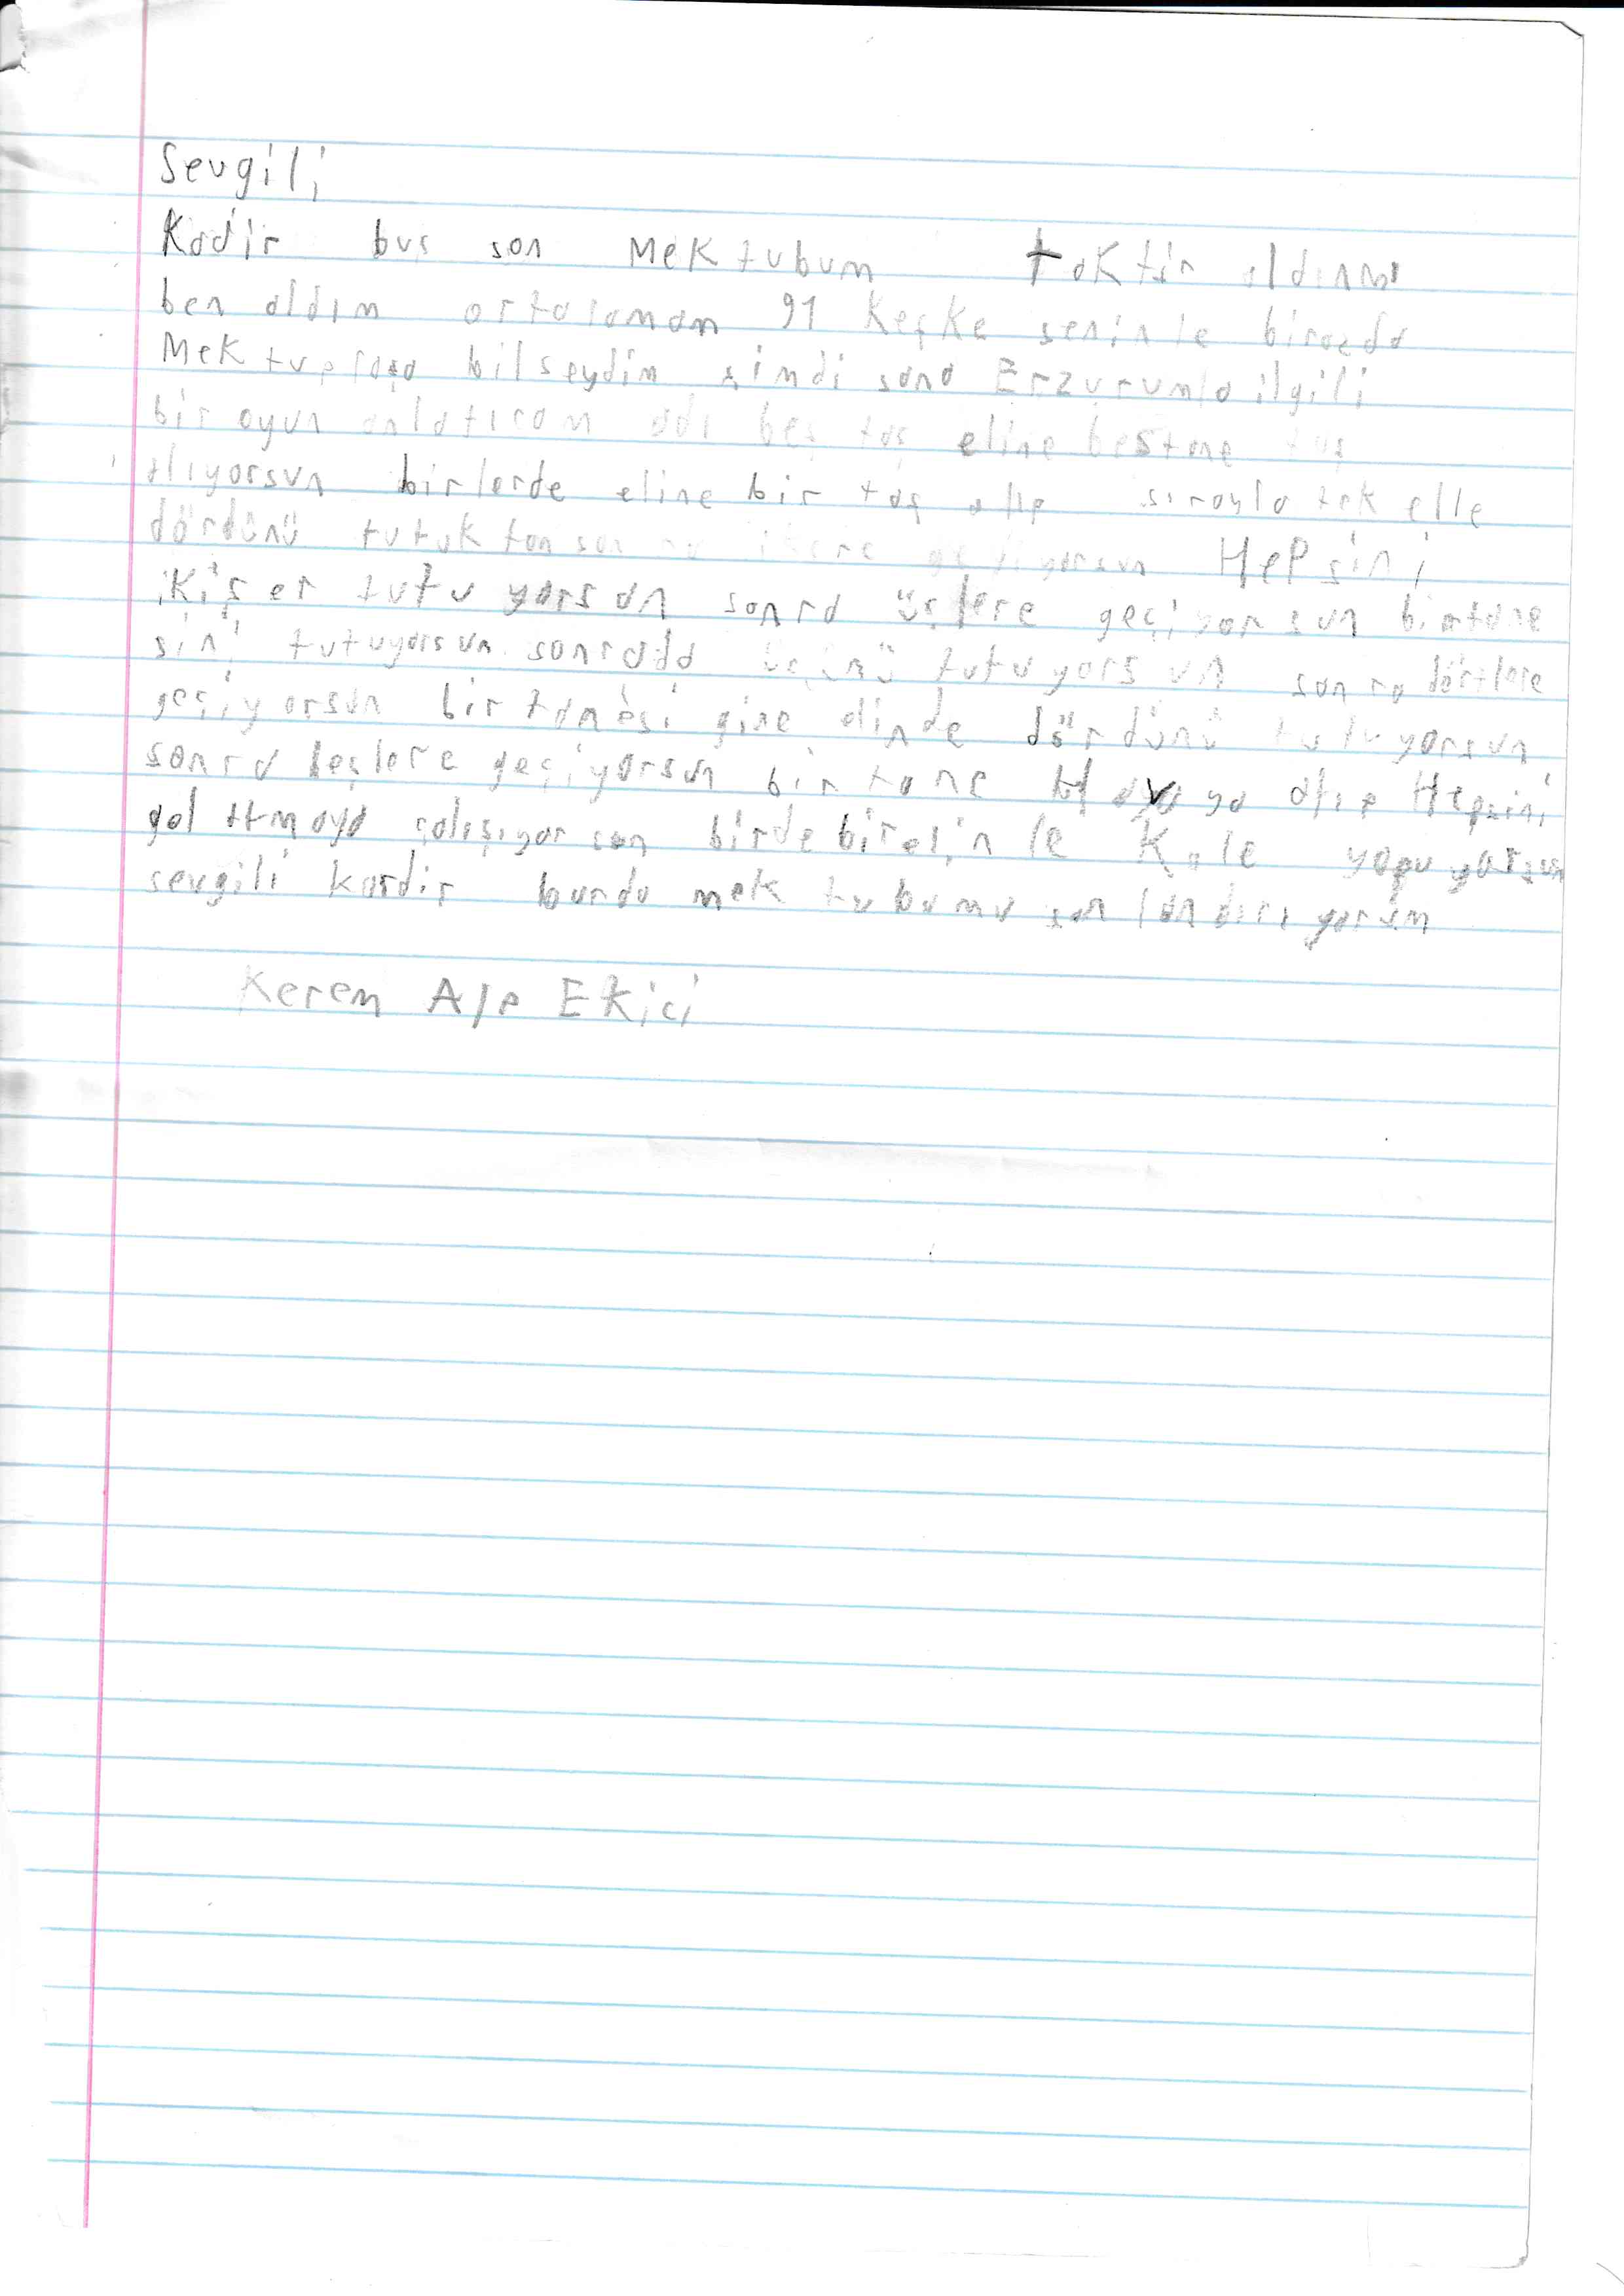 Sevgili
Kadir bus son Mektubum taktir aldınmı
ben aldım ortalamam 91 Keşke seninle birazda
Mektuplaşa bilseydim şimdi sana Erzurumla ilgili
bir oyun anlatıcam adı beş taş eline beştane taş
alıyorsun birlerde eline bir taş alıp sırayla tek elle
dördünü tutuktan sonra geçiyorsun HePsini
ikişer tutu yorsun sonra üçlere geçiyorsun birtane
sini tutuyorsun sonrada üçünü tutuyorsun sonra dörtlere
geçiyorsun bir tanesi gine elinde dördünü tutuyorsun
sonra beşlere geçiyorsun bir tane Havaya atıp Hepsini
çalışıyorsun birde bir elinle Kale yapıyorsun
sevgili kardir burda mektubumu sonlandırıyorum
Kerem Alp Ekici